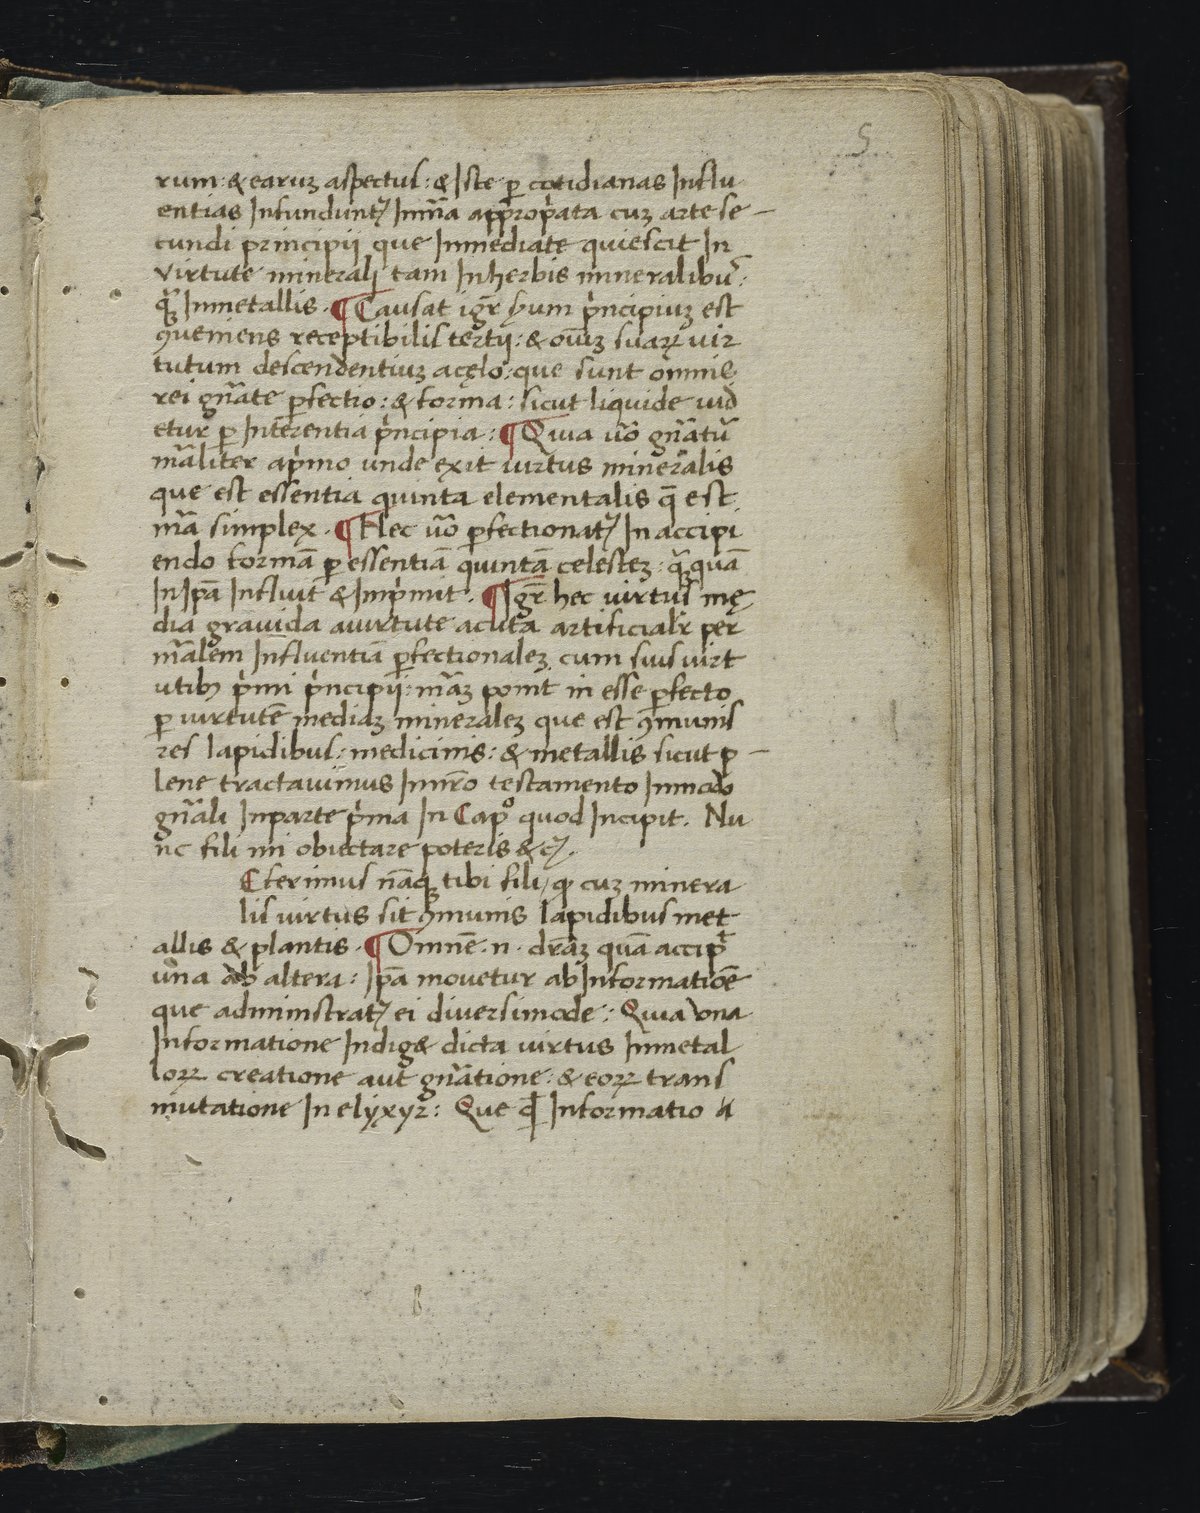 5
rum: & earuʒ aspectus: & Iste ꝑ cotidianas Influ
entias Infundunt᷑ Inmr̃a appropiata cuʒ arte se –
cundi principij que Inmediate quiescit In
virtute minerali tam Inherbis mineralibus:
ꝙ̃ Inmetallis. ¶ Causat igr̃ hum pͥncipiuʒ est
ꝯueniens receptibilis tertij: & oĩuʒ suaꝝ uir
tutum descendentiuʒ acęlo: que sunt omnis
rei gñate ꝑfectio: & forma: sicut liquide uid
etur ꝑ Inferentia pͥncipia: ¶ Quia ũo gñatũ
nãliter apͥmo unde exit uirtus mineralis
que est essentia quinta elementalis q̃ est
mãa simplex. ¶ Hec ũo ꝑfectionat᷑ In accipi
endo formã ꝑ essentiã quintã celesteʒ: q̃ʒquã
In Ipã Influit & Impͥmit. ¶ Igr̃ hec uirtus mę
dia grauida auirtute acuta artificialr̃ per
nãlem Influentiã ꝑfectionaleʒ cum suis uirt
utibꝰ pͥmi pͥncipij: mãʒ ponit in esse ꝑfecto
ꝑ uirtutẽ mediaʒ mineraleʒ que est ꝯmunis
res lapidibus: medicinis: & metallis sicut p –
lene tractauimus Innr̃o testamento Inmodo
gñali Inparte pͥma In Capͦ quod Incipit. Nu
nc fili mi obiectare poteris & c᷑.
Cferimus nãqʒ tibi fili, ꝙ cuʒ minera
lis uirtus sit ꝯmunis lapidibus met
allis & plantis. ¶ Omnẽ .n. dr̃aʒ quã accipͭ
una ab altera: Ipã mouetur ab Informatiõe
que administrat᷑ ei diuersimode: Quia una
Informatione Indig& dicta uirtus Inmetal
loꝝ creatione aut gñatione: & eoꝝ trans
mutatione In elyxyr: Que qͥd Informatio